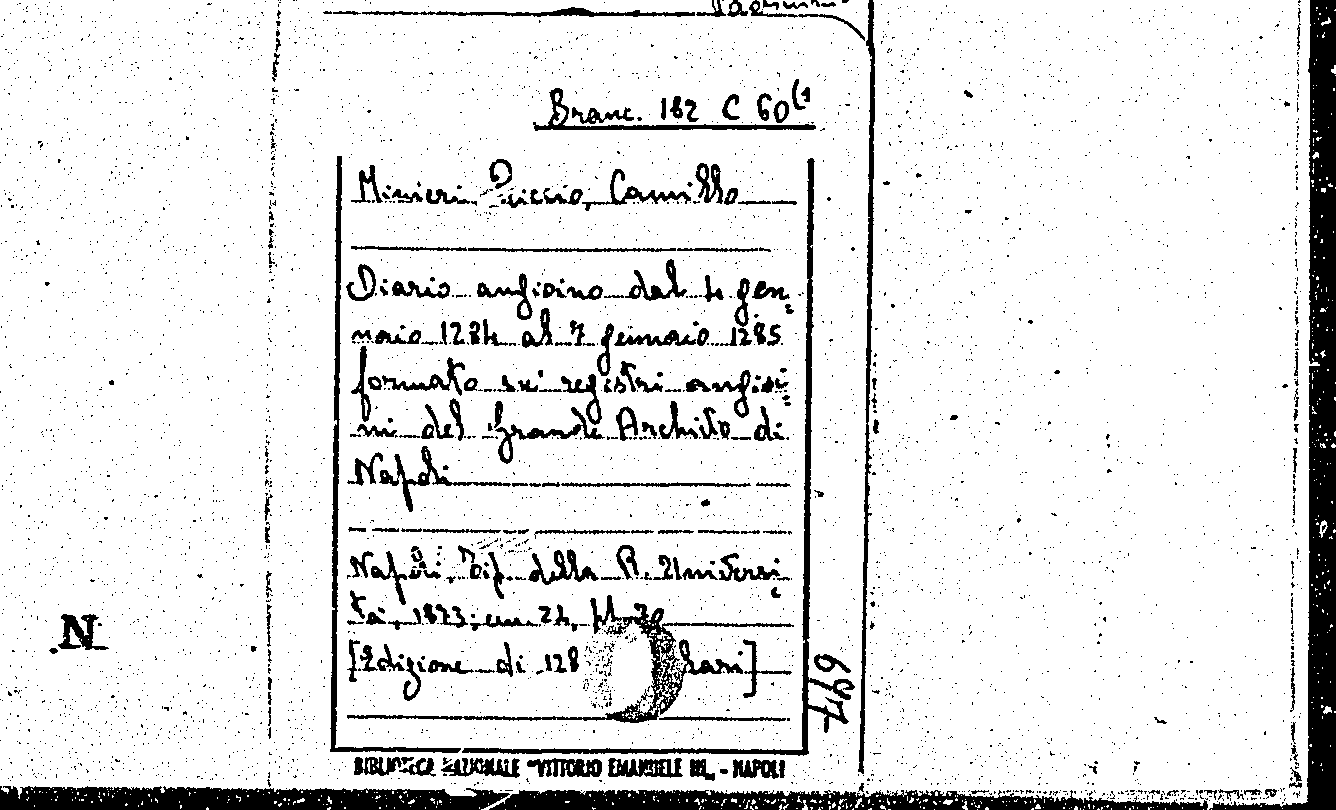 Branc. 162 C 60(1
Minieri Riccio, Camillo
Diario angioino dal 4 gen=
naio 1284 al 7 gennaio 1285
formato sui registri angioi=
ni del Grande Archivio di
Napoli
Napoli, Tip. della R. Universi=
tà, 1873; cm. 24, pp. 30
[Edizione di 128
lari]
697
N
BIBLIOTECA NAZIONALE "VITTORIO EMANUELE III„ - NAPOLI